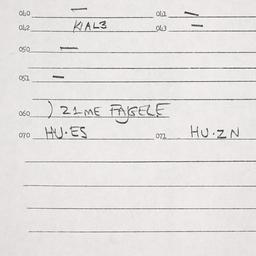 040 — 041 —
042 KIAL3 043 —
050 —
051 —
060 ) 21ME FAJGELE
070 HU·ES 071 HU·ZN